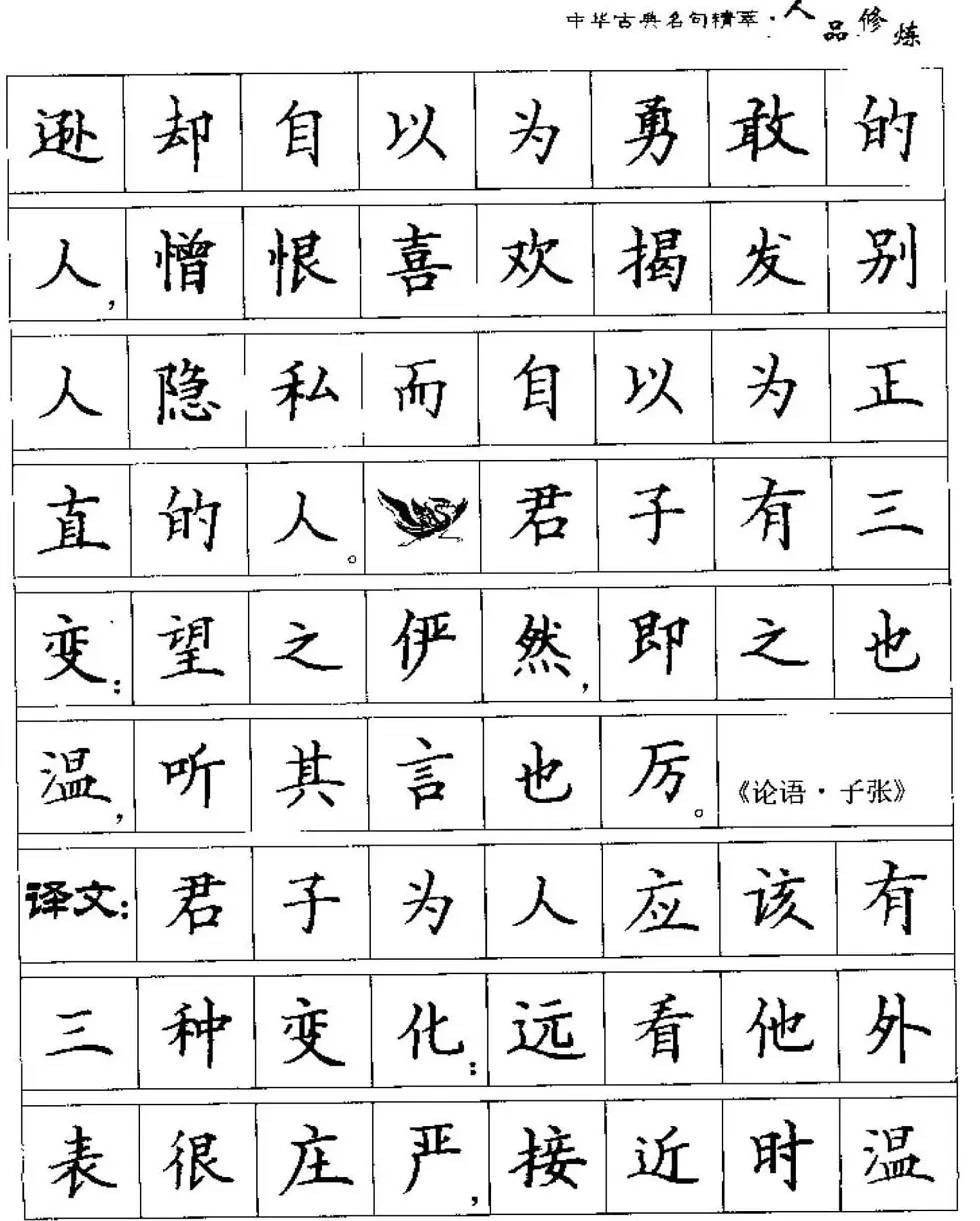 中华古典名句精萃·人品修炼
逊却自以为勇敢的
人,憎恨喜欢揭发别
人隐私而自以为正
直的人。君子有三
变:望之俨然,即之也
温,听其言也厉。《论语·子张》
译文:君子为人应该有
三种变化:远看他外
表很庄严,接近时温